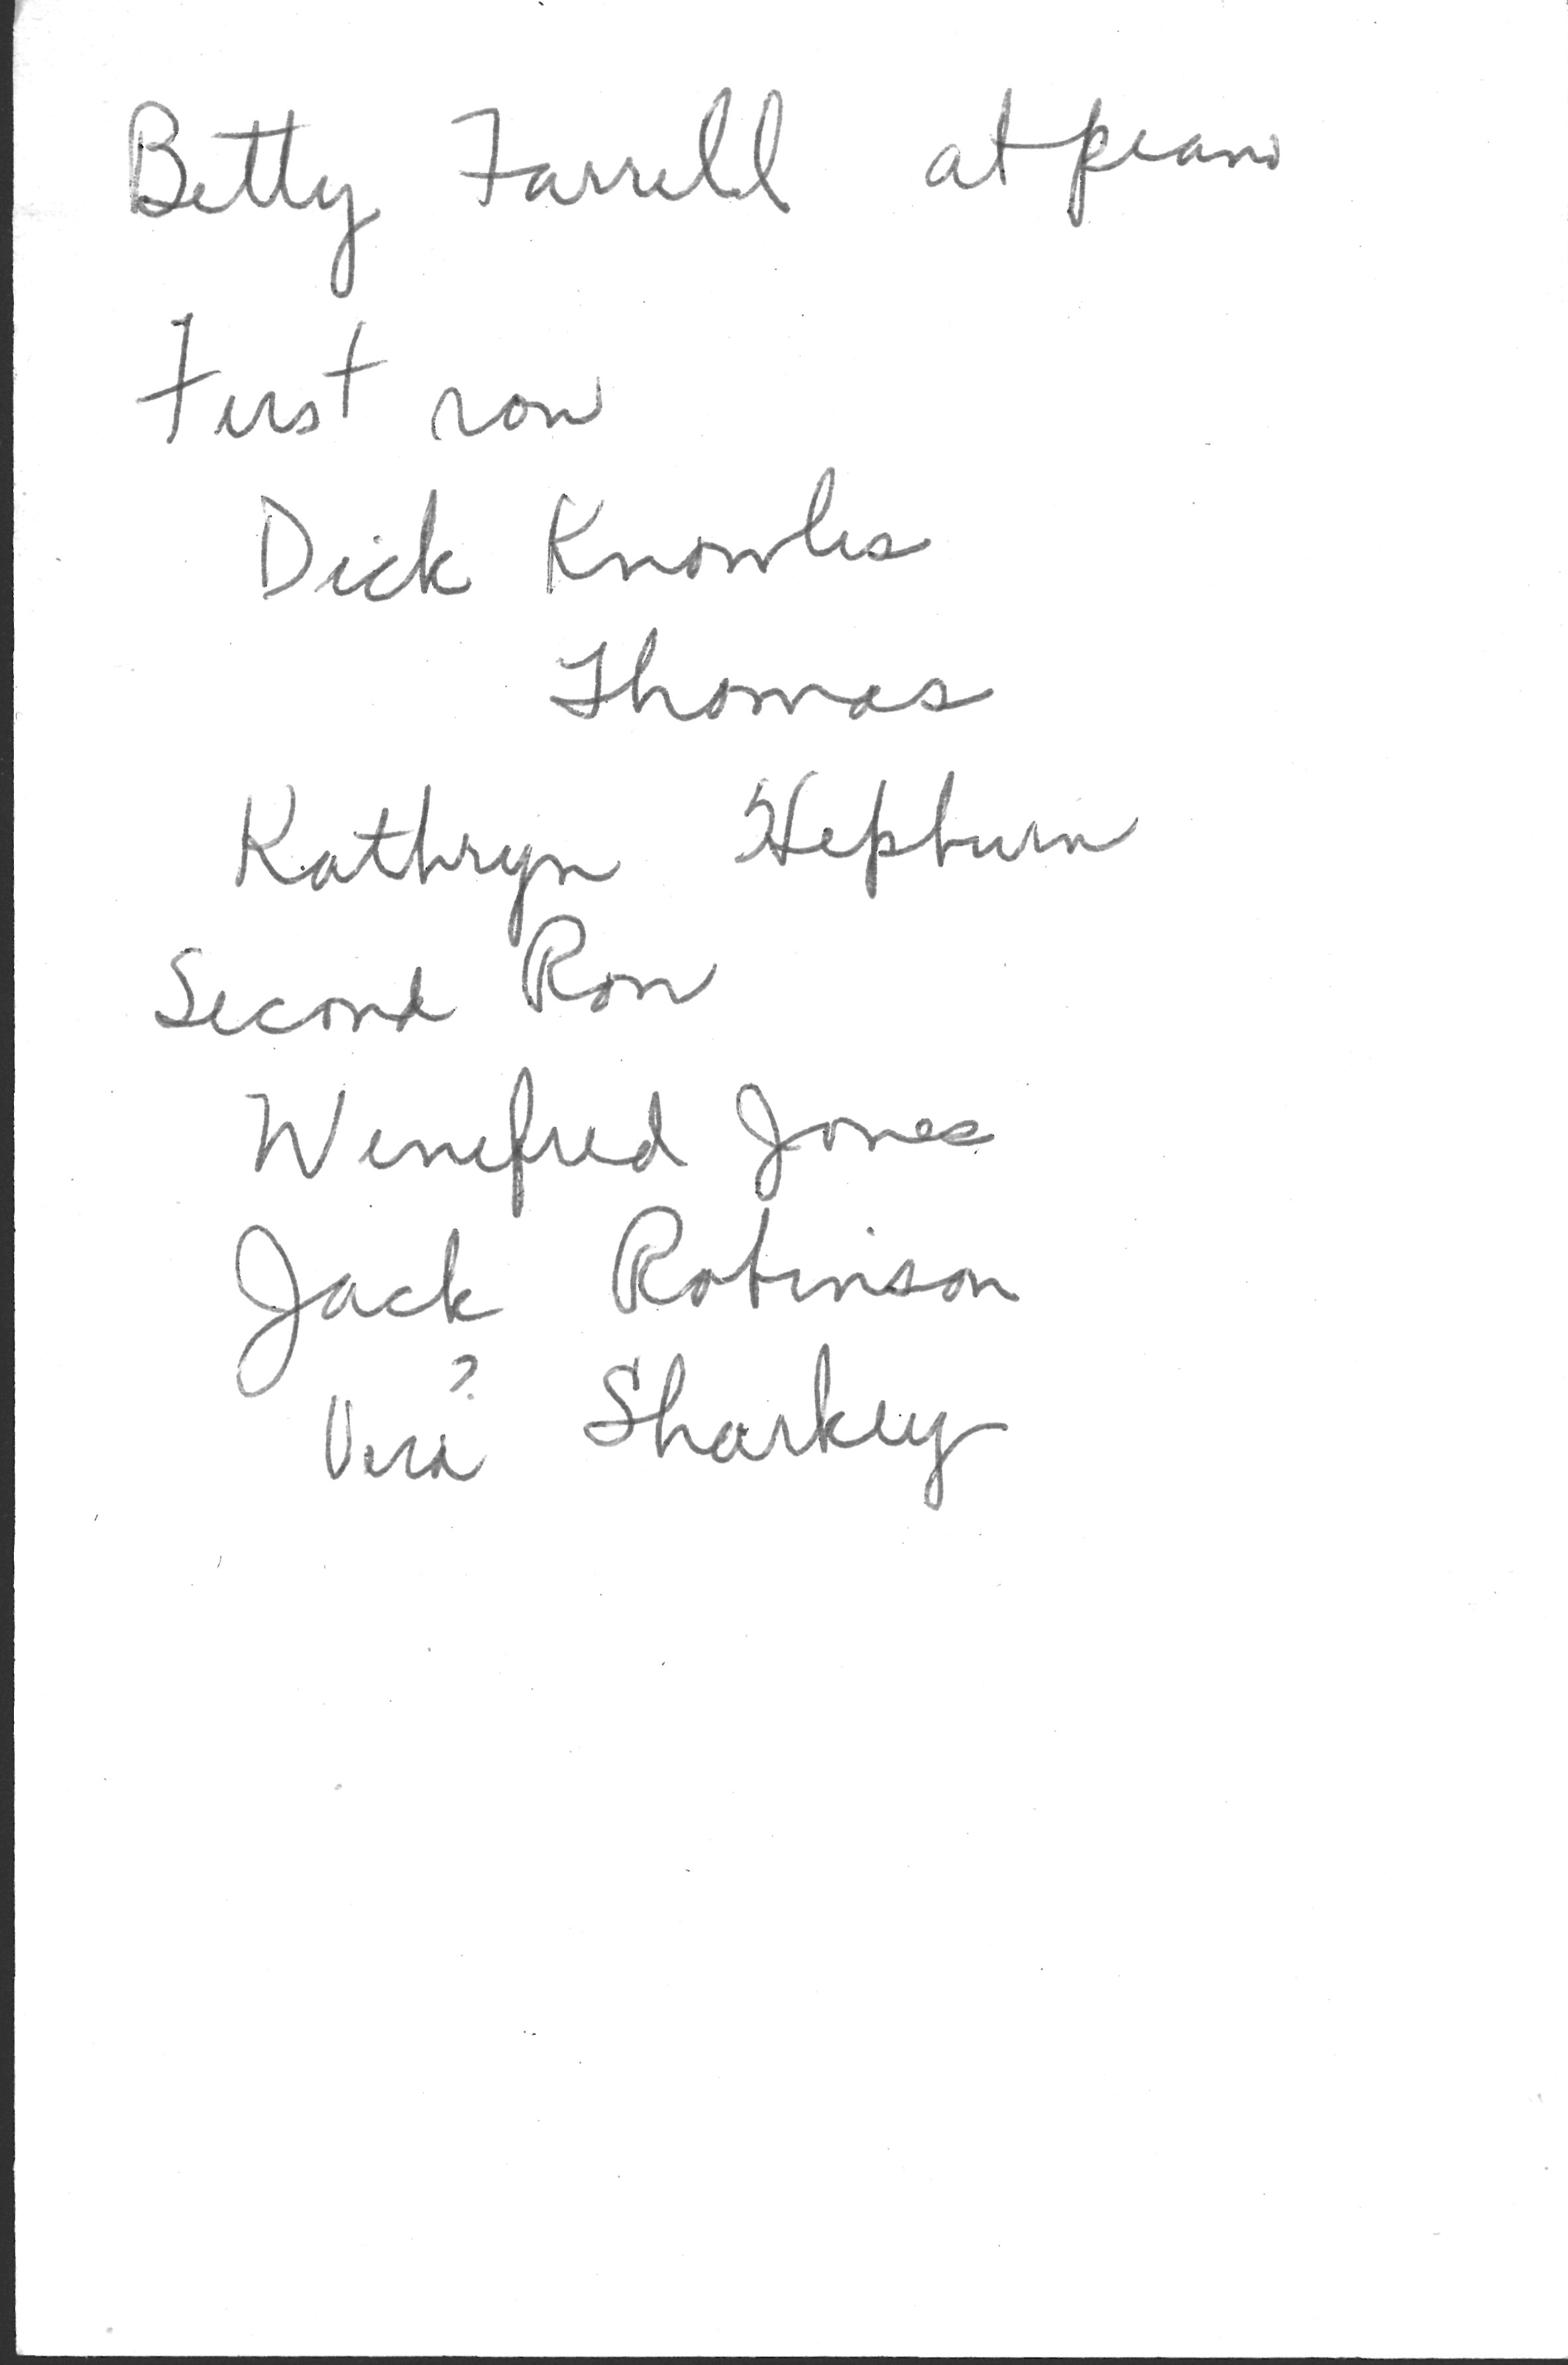 Betty Farrell at piano
First row
Dick Knowles
Thomas
Kathryn Hepburn
Second Row
Winifred Jones
Jack Robinson
?
Vera Sharkey